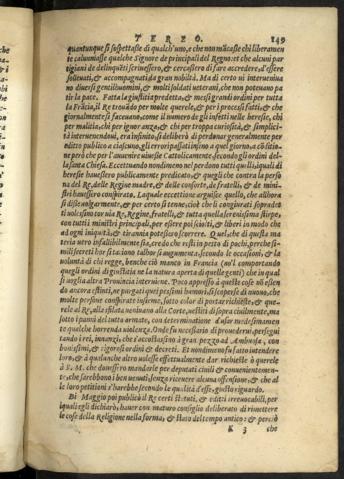 TERZO. 149
quantunque si sospettasse di qualch'uno, e che non mãcasse chi liberamen
te calunniasse qualche Signore de principali del Regno: et che alcuni par
tigiani de delinquẽti scriuessero, & cercassero di fare accredere, d'essere
solleuati, & accompagnati, da gran nobiltà. Ma di certo ui interuennero
no diuersi gentilhuomini, & molti soldati ueterani, che non poteuano pa
tir la pace. Fatta la giustitia predetta, & messi grandi ordini per tutta
la Frãcia, il Re trouãdo per molte querele, & per i processi fatti, & che
giornalmente si faceuano, come il numero de gli infetti nelle heresie, chi
per malitia, chi per ignoranza, & chi per troppa curiosità, & simplici-
tà interuenendoui, era infinito, si deliberà di perdonar generalmente per
editto publico a ciascuno, gli errori passati insino a quel giorno, a cõditio-
ne però che per l'auuenire uiuesse Catholicamente, secondo gli ordini del-
la santa Chiesa. Eccettuando nondimeno nel perdono tutti quelli, iquali di
heresie hauessero publicamente predicato, & quegli che contra la perso
na del Re, delle Regine madre, & delle consorte, de fratelli, & de mini-
stri hauessero conspirato. Laqual eccettione arguisce quello, che allhora
si disse uolgarmente, & per certo si tenne, cioè che i congiurati sopradet
ti uolessino tor uia Re, Regine, fratelli, & tutta quella serenissima stirpe,
con tutti i ministri principali, per essere poi sciolti, & liberi in modo che
ad ogni iniquità, & tirannia potessino scorrere. Quel, che di questa ma
teria uero infallibilmente sia, credo che resti in petto di pochi, perche si-
mili secreti hor si tacciono talhor si augmentano, secondo le occasioni, & la
uoluntà di chi regge, benche ciò manco in Francia (nol comportando
quegli ordini di giustitia ne la natura aperta di quelle genti) che in qual
si uoglia altra Prouincia interuiene. Poco appresso à queste cose nõ essen
do ancora estinti, ne purgati quei pessimi humori, si scoperse di nuouo, che
molte persone conspirate insieme, sotto color di portar richieste, & que-
rele al Re, alla sfilata ueniuano alla Corte, uestiti di sopra ciuilmente, ma
sotto i panni del tutto armate, con determinatione d'usar medesimamen
te qualche horrenda uiolenza. Onde fu necessario di prouederui, persegui
tando i rei, innanzi, che s'accostassino à gran pezzo ad Ambosa, con
bonissimi, & rigorosi ordini & decreti. Et nondimeno fu fatto intendere
loro, & à qualunche altro uolesse effettualmente dar richieste ò querele
à S. M. che douessero mandarle per deputati ciuili & conuenientemen-
te, che sarebbono i ben uenuti, senza riceuere alcuna offensione, & che al
le loro petitioni s'harebbe secondo le qualità d'esse, giusto riguardo.
Di Maggio poi publicò il Re certi statuti, & editti irreuocabili, per
i quali egli dichiarò, hauer con maturo consiglio deliberato di rimettere
le cose della Religione nella forma, & stato del tempo antico: & perciò
K 3 che